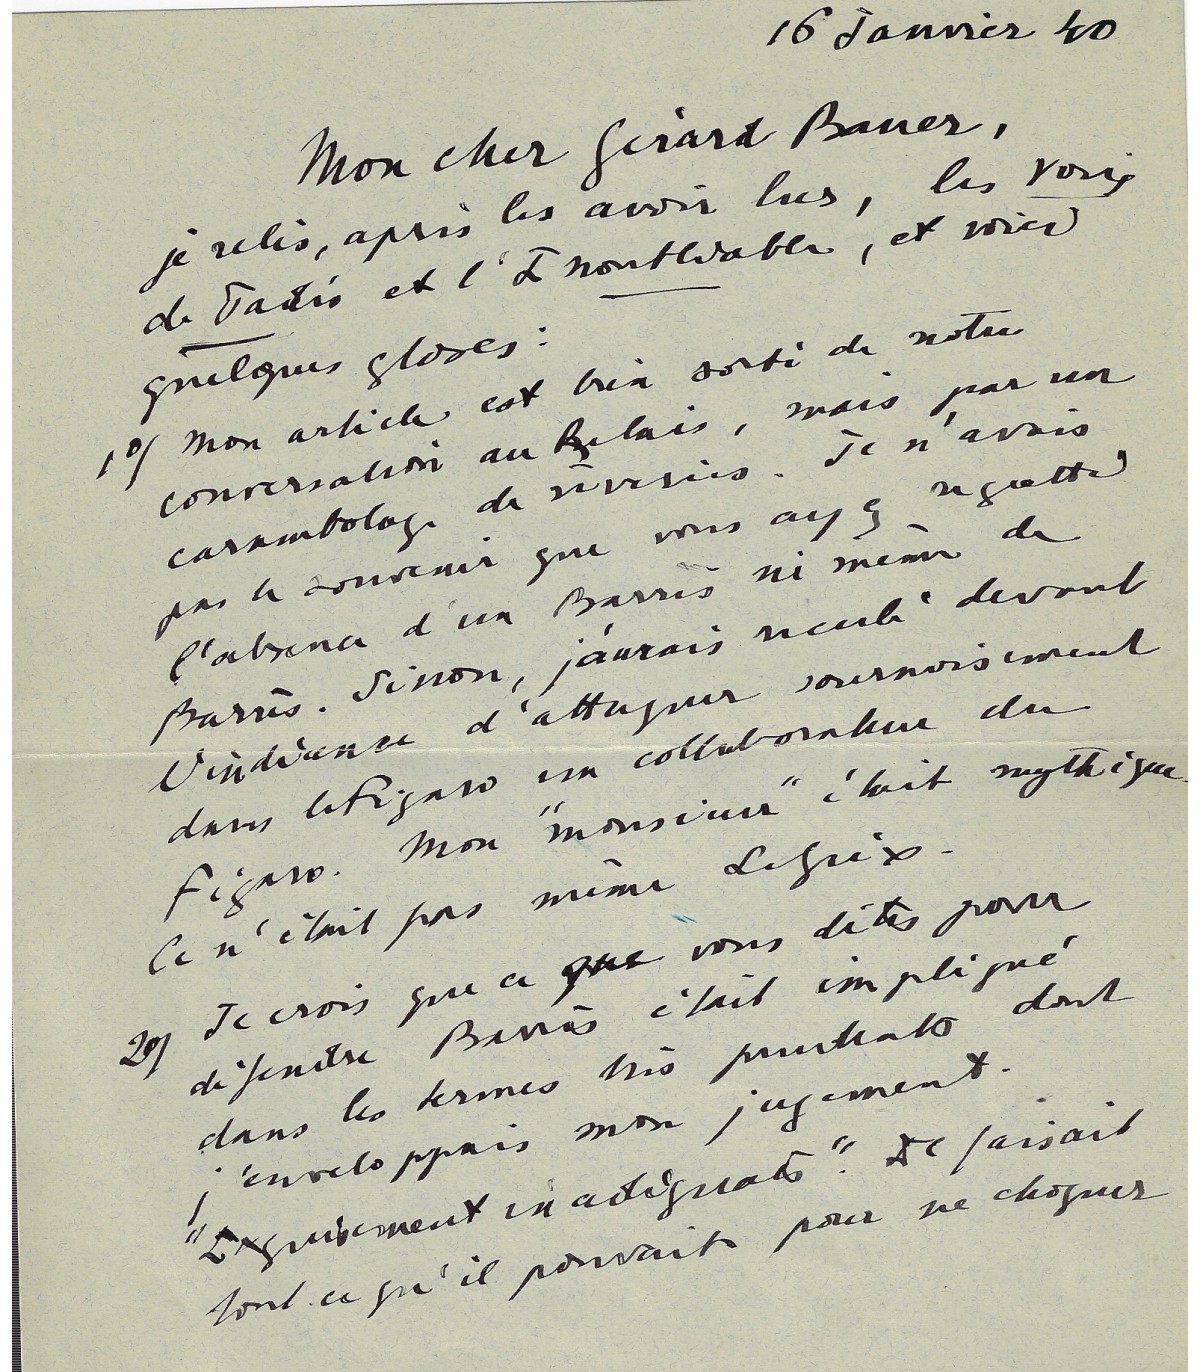 16 Janvier 40
Mon cher Gérard Bauer,
je relis, après les avoir lus, les voix
de Paris et l'Inoubliable, et voici
quelques gloses :
1°/ Mon article est bien sorti de notre
conversation au Relais, mais par un
carambolage de rêveries. Je n'avais
pas le souvenir que vous ayez regretté
l'absence d'un Barrès ni même de
Barrès. Sinon, j'aurais reculé devant
l'indécence d'attaquer sournoisement
dans le Figaro un collaborateur du
Figaro. Mon "monsieur" était mythique.
Ce n'était pas même LeGrix.
2°/ Je crois que ce que vous dites pour
défendre Barrès était impliqué
dans les termes très prudents dont
j'enveloppais mon jugement.
"Exquisement inadéquats". Je faisait
tout ce qu'il pouvait pour ne choquer